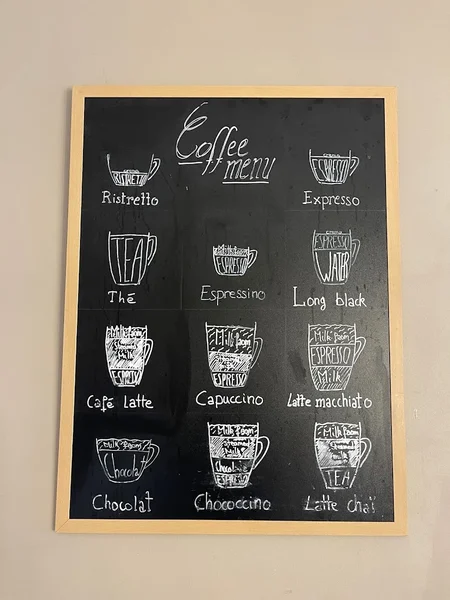 Coffee
menu
RISTRETTO
Ristretto
ESPRESSO
Expresso
TEA
Thé
Milk foam
ESPRESSO
Espressino
ESPRESSO
WATER
Long black
Milk foam
Steamed
Milk
ESPRESSO
Café latte
Milk foam
ESPRESSO
Capuccino
Milk foam
ESPRESSO
Milk
Latte macchiato
Milk foam
Chocolat
Chocolat
Milk foam
Steamed
Milk
Chocolate
ESPRESSO
Chococcino
Milk foam
Steamed
Milk
TEA
Latte chaï